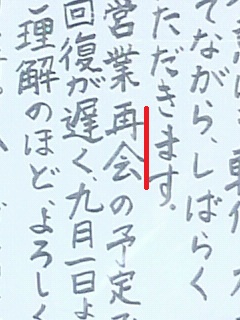 てながら、しばらく
ただきます。
営業再会の予定
回復が遅く、九月一日よ
理解のほど、よろしく